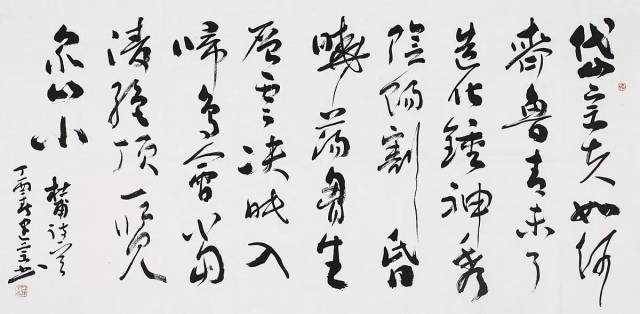 岱宗夫如何
齊魯青未了
造化鍾神秀
陰陽割昏
曉蕩胸生
層雲決眦入
歸鳥會當
凌絕頂一覽
眾山小
杜甫詩
丁書